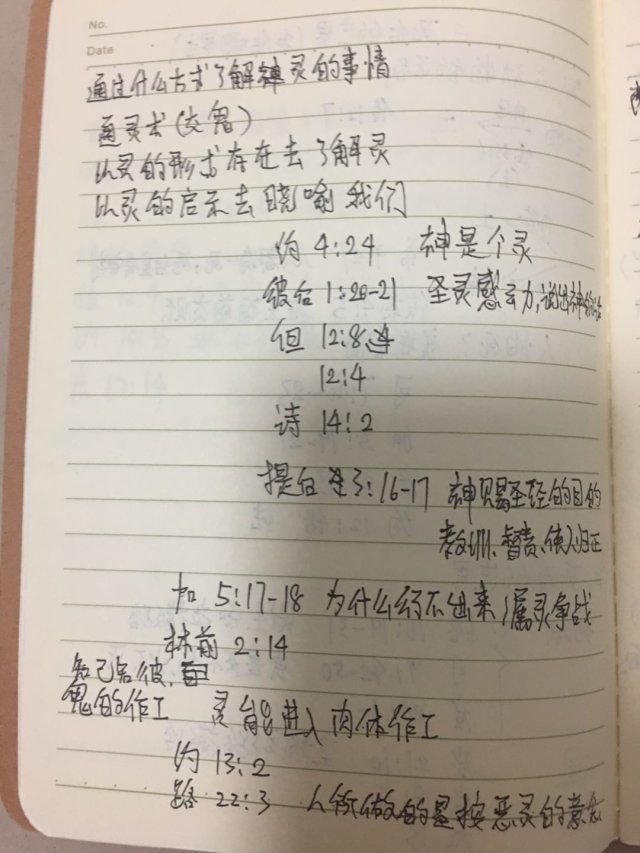 No.
Date
通过什么方式了解神灵的事情
通灵术(交鬼)
以灵的形式存在去了解灵
以灵的启示去晓喻我们
约 4:24 神是个灵
彼后 1:20-21 圣灵感动,说出神的话
但 12:8
12:4
诗 14:2
提后 3:16-17 神赐圣经的目的
教训、督责、使人归正
加 5:17-18 为什么行不出来/属灵争战
林前 2:14
知己知彼,
鬼的作工 灵能进入肉体作工
约 13:2
路 22:3 人所做的是按恶灵的意念